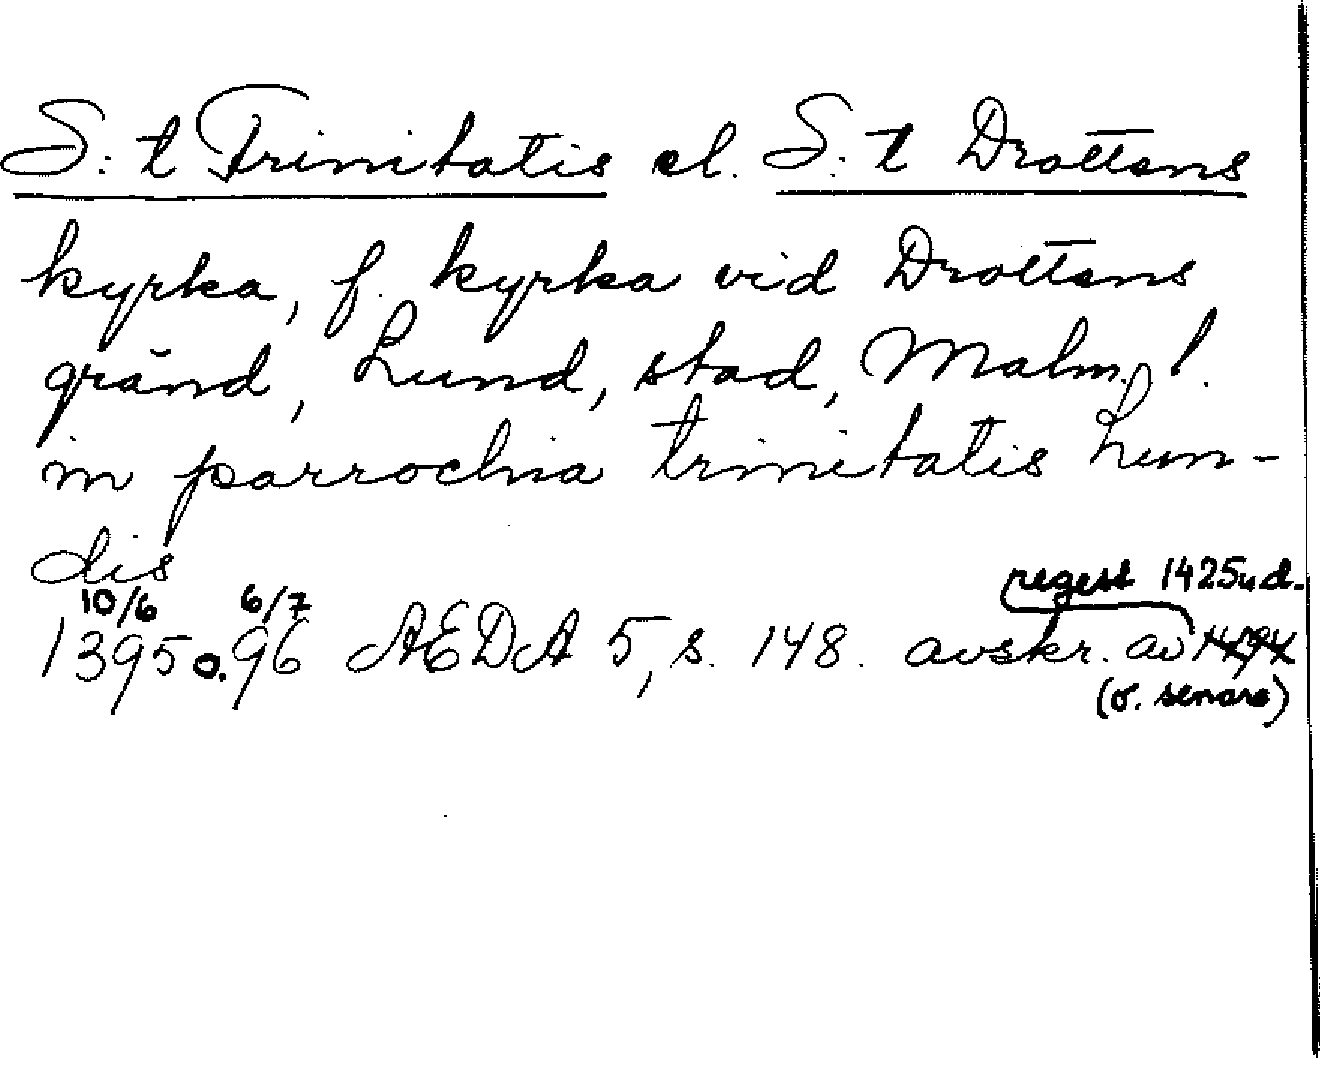 S:t Trinitatis el. S:t Drottens
kyrka, f. kyrka vid Drottens
gränd, Lund, stad, Malm. l.
in parrochia trinitatis Lun-
dis
10/6 6/7 regest 1425 u.d.
1395 o. 96 AEDA 5, s. 148. avskr. av 1494
(o. senare)